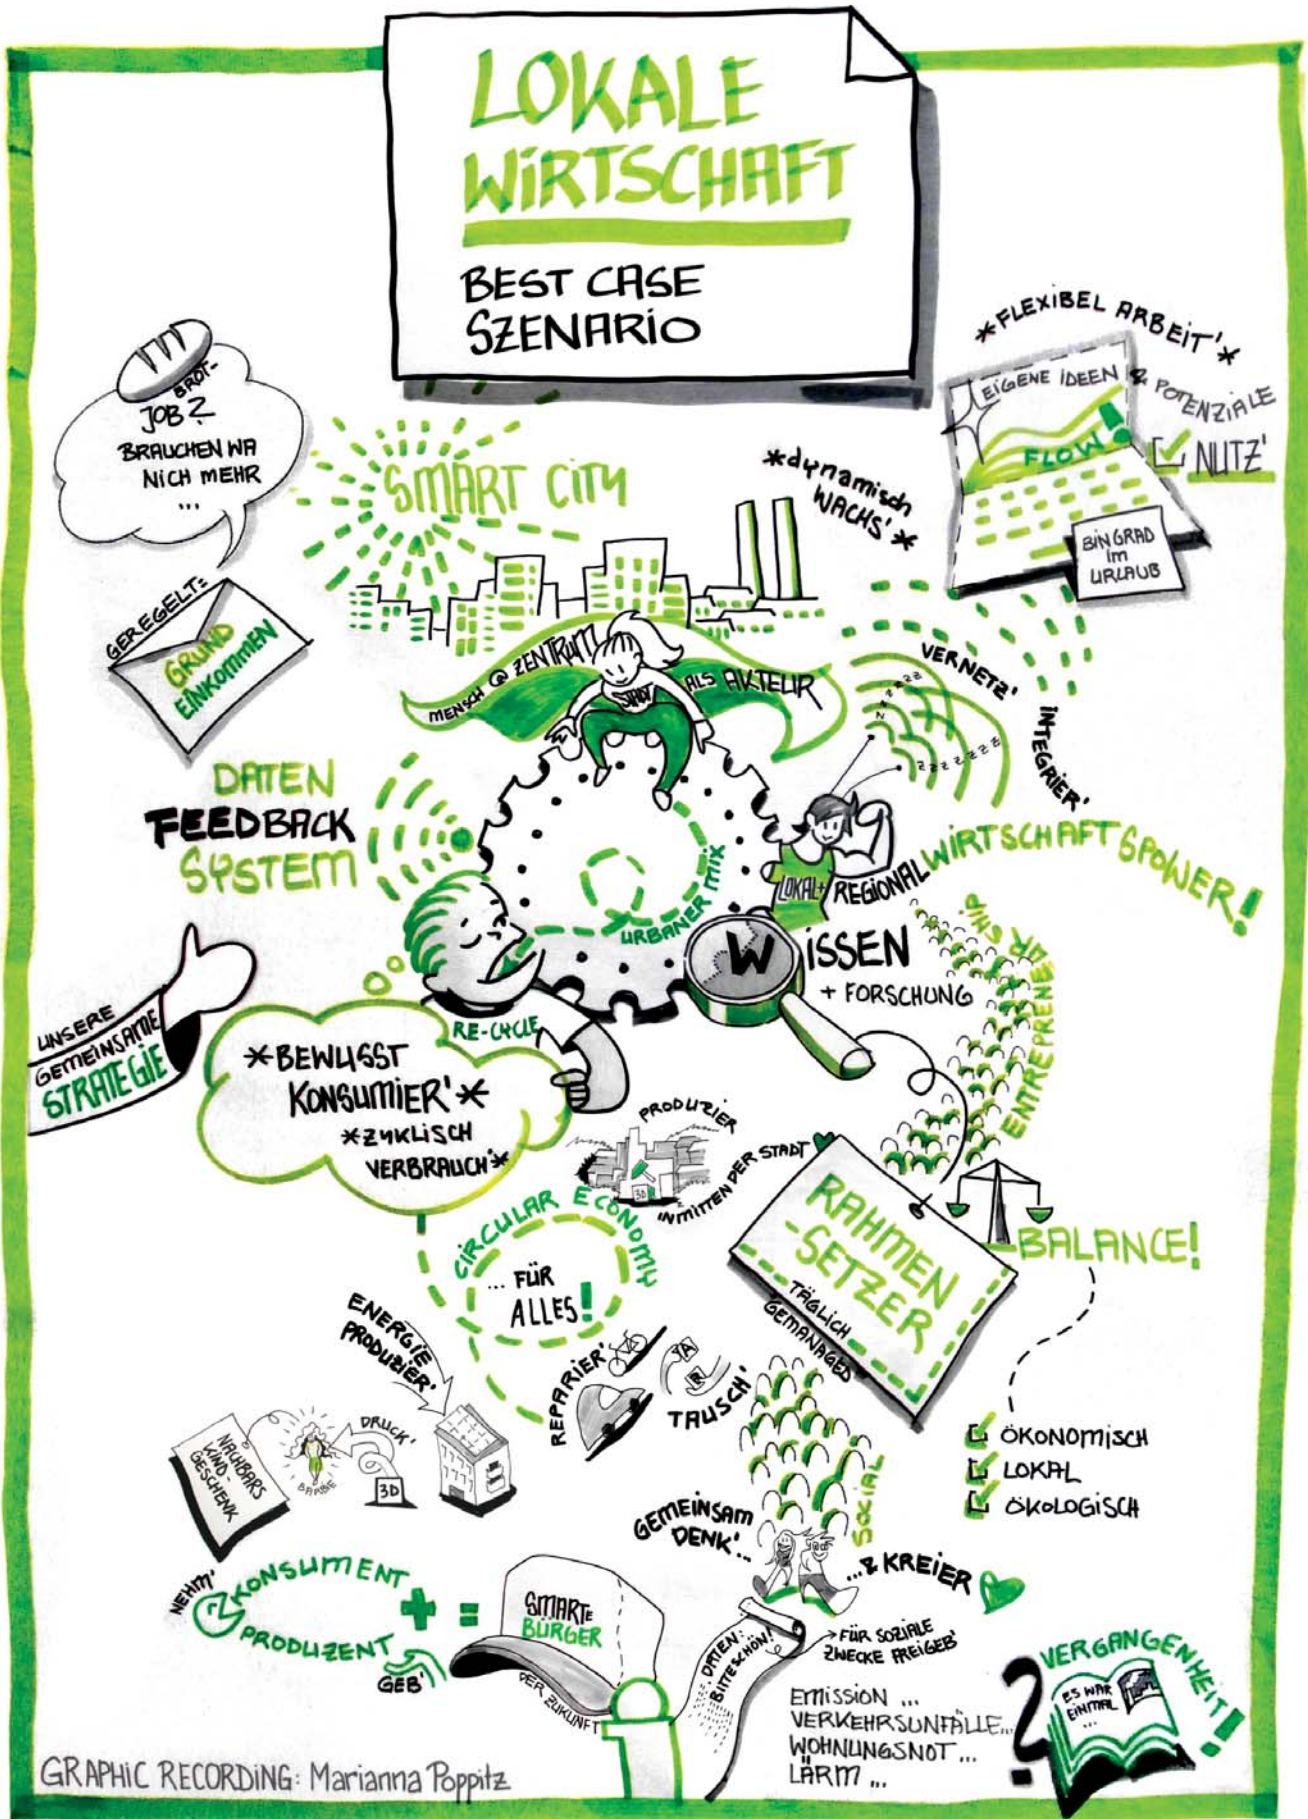 LOKALE
WIRTSCHAFT
BEST CASE
SZENARIO
BROT-
JOB?
BRAUCHEN WA
NICH MEHR
...
GEREGELT:
GRUND
EINKOMMEN
SMART CITY
*dynamisch
WACHS'*
*FLEXIBEL ARBEIT'*
EIGENE IDEEN & POTENZIALE
FLOW!
NUTZ'
BIN GRAD
im
URLAUB
MENSCH @ ZENTRUM
STADT
ALS AKTEUR
VERNETZ'
INTEGRIER'
ZZZZZ
ZZZZZZZ
DATEN
FEEDBACK
SYSTEM
URBANER MIX
LOKAL+ REGIONAL WIRTSCHAFTSPOWER!
WISSEN
+ FORSCHUNG
ENTREPRENEURSHIP
UNSERE
GEMEINSAME
STRATEGIE
RE-CYCLE
*BEWUSST
KONSUMIER'*
*ZYKLISCH
VERBRAUCH'*
PRODUZIER
INMITTEN DER STADT
3D
CIRCULAR ECONOMY
... FÜR
ALLES!
RAHMEN
-SETZER
TÄGLICH
GEMANAGED
BALANCE!
ÖKONOMISCH
LOKAL
ÖKOLOGISCH
ENERGIE
PRODUZIER'
REPARIER'
TAUSCH'
NACHBARS
KIND-
GESCHENK
BARBIE
DRUCK'
3D
SOCIAL
GEMEINSAM
DENK'...
...& KREIER
NEHM'
KONSUMENT
PRODUZENT
GEB'
+ =
SMARTE
BÜRGER
DER ZUKUNFT
DATEN:
BITTESCHÖN!
FÜR SOZIALE
ZWECKE FREIGEB'
EMISSION ...
VERKEHRSUNFÄLLE...
WOHNUNGSNOT...
LÄRM ...
?
VERGANGENHEIT!
ES WAR
EINMAL
...
GRAPHIC RECORDING: Marianna Poppitz